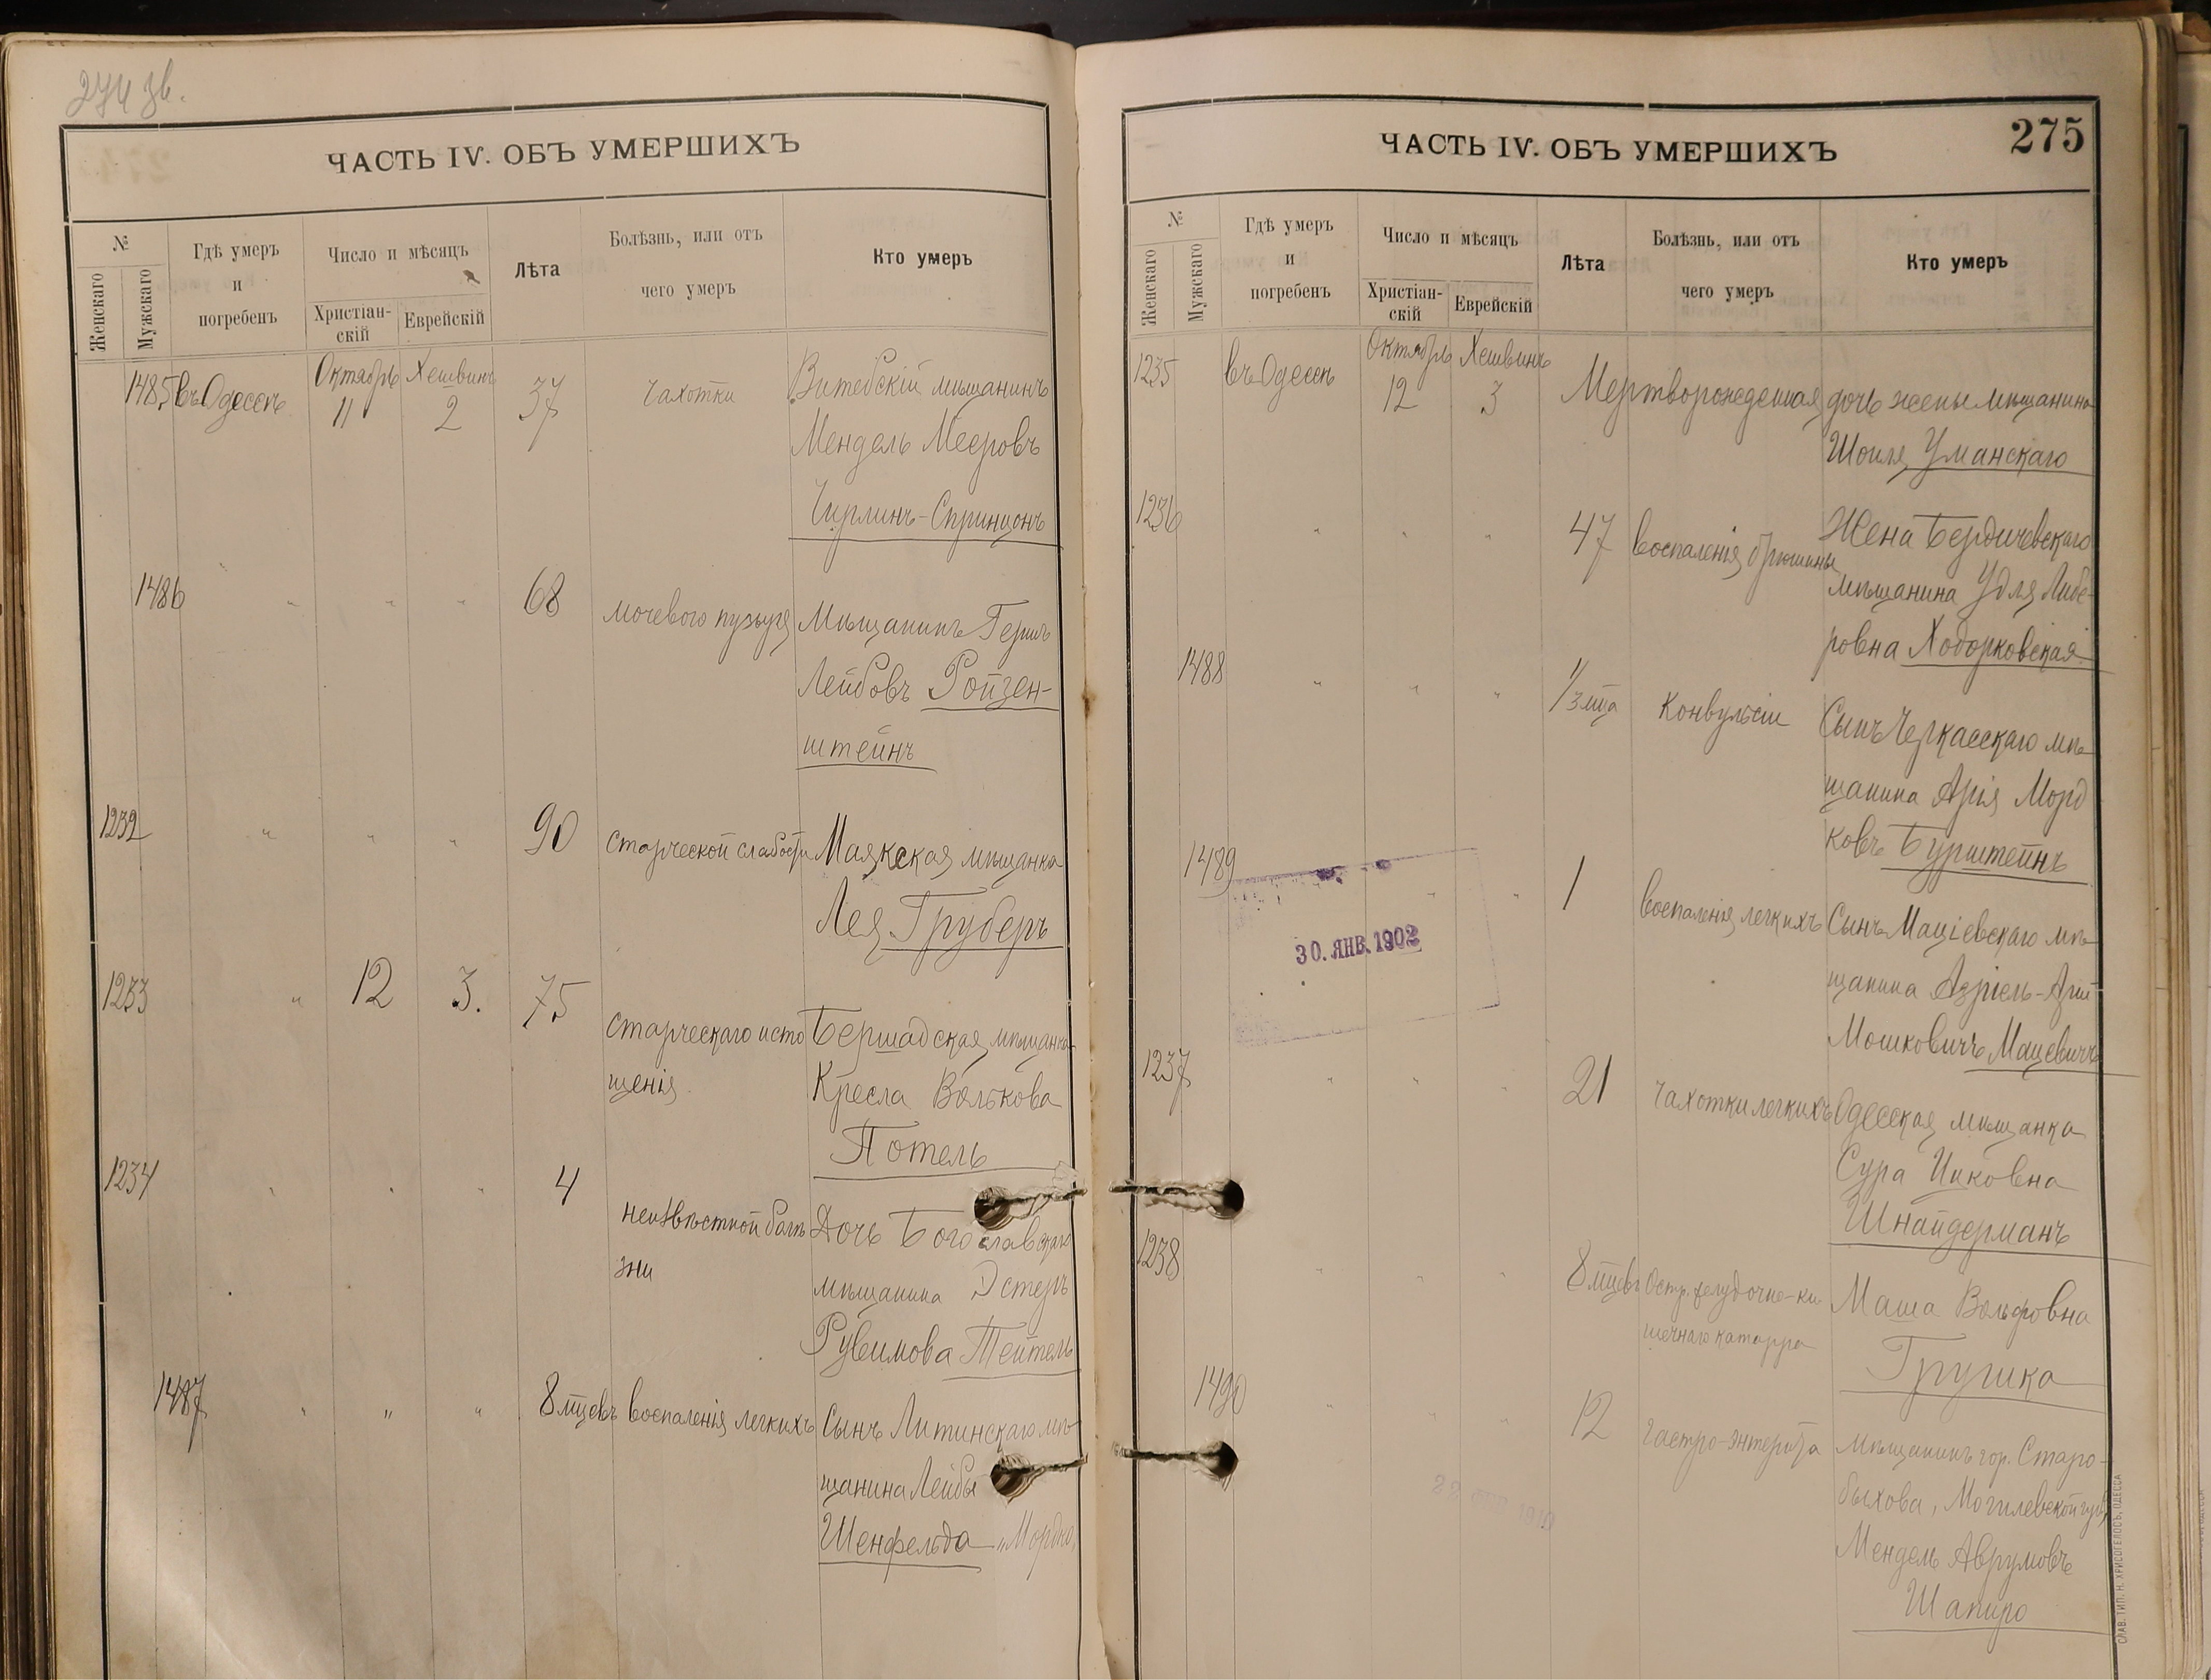 274 зв.
ЧАСТЬ IV. ОБЪ УМЕРШИХЪ
№
Женскаго
Мужскаго
Гдѣ умеръ
и
погребенъ
Число и мѣсяцъ
Христіан-
скій
Еврейскій
Лѣта
Болѣзнь, или отъ
чего умеръ
Кто умеръ
1485 въ Одессѣ Октябрь 11 Хешвинъ 2 37 чахотки Витебскій мѣщанинъ
Мендель Мееровъ
-Спринцонъ
1486 " " " 68 мочевого пузыря Мѣщанинъ Гершъ
Лейбовъ Ройзен-
штейнъ
1232 " " " 90 старческой слабости Маякская мѣщанка
Лея Груберъ
1233 " 12 3. 75 старческаго исто Бершадская мѣщанка
щенія Кресла Волькова
Потель
1234 " " " 4 неизвѣстной болѣ Дочь Богославскаго
зни мѣщанина Эстеръ
Рувимова Тейтель
1487 " " " 8 мѣцевъ воспаленія легкихъ Сынъ Литинскаго мѣ-
щанина Лейбы
Шенфельда "Мордко"
ЧАСТЬ IV. ОБЪ УМЕРШИХЪ
275
№
Женскаго
Мужскаго
Гдѣ умеръ
и
погребенъ
Число и мѣсяцъ
Христіан-
скій
Еврейскій
Лѣта
Болѣзнь, или отъ
чего умеръ
Кто умеръ
1235 въ Одессѣ Октябрь 12 Хешвинъ 3 Мертворожденная дочь жены мѣщанина
Шоиля Уманскаго
1236 " " " 47 воспаленія брюшины Жена Бердичевскаго
мѣщанина Удля Либе-
ровна Ходорковская
1488 " " " 1/3 мца Конвульсіи Сынъ Черкасскаго мѣ-
щанина Арія Морд
ковъ Бурштейнъ
1489 " " 1 воспаленія легкихъ Сынъ Маціевскаго мѣ-
щанина Азріель-Арій
Мошковичъ Мацевичъ
30. ЯНВ. 1902
1237 " " " 21 чахотки легкихъ Одесская мѣщанка
Сура Ицковна
Шнайдерманъ
1238 " " " 8 мцевъ Остр. желудочно-ки Маша Вольфовна
шечнаго катарра Грушка
1490 " " " 12 гастро-энтерита Мѣщанинъ гор. Старо-
быхова, Могилевской губ,
Мендель Аврумовъ
Шапиро
СЛАВ. ТИП. Н. ХРИСОГЕЛОСЪ, ОДЕССА